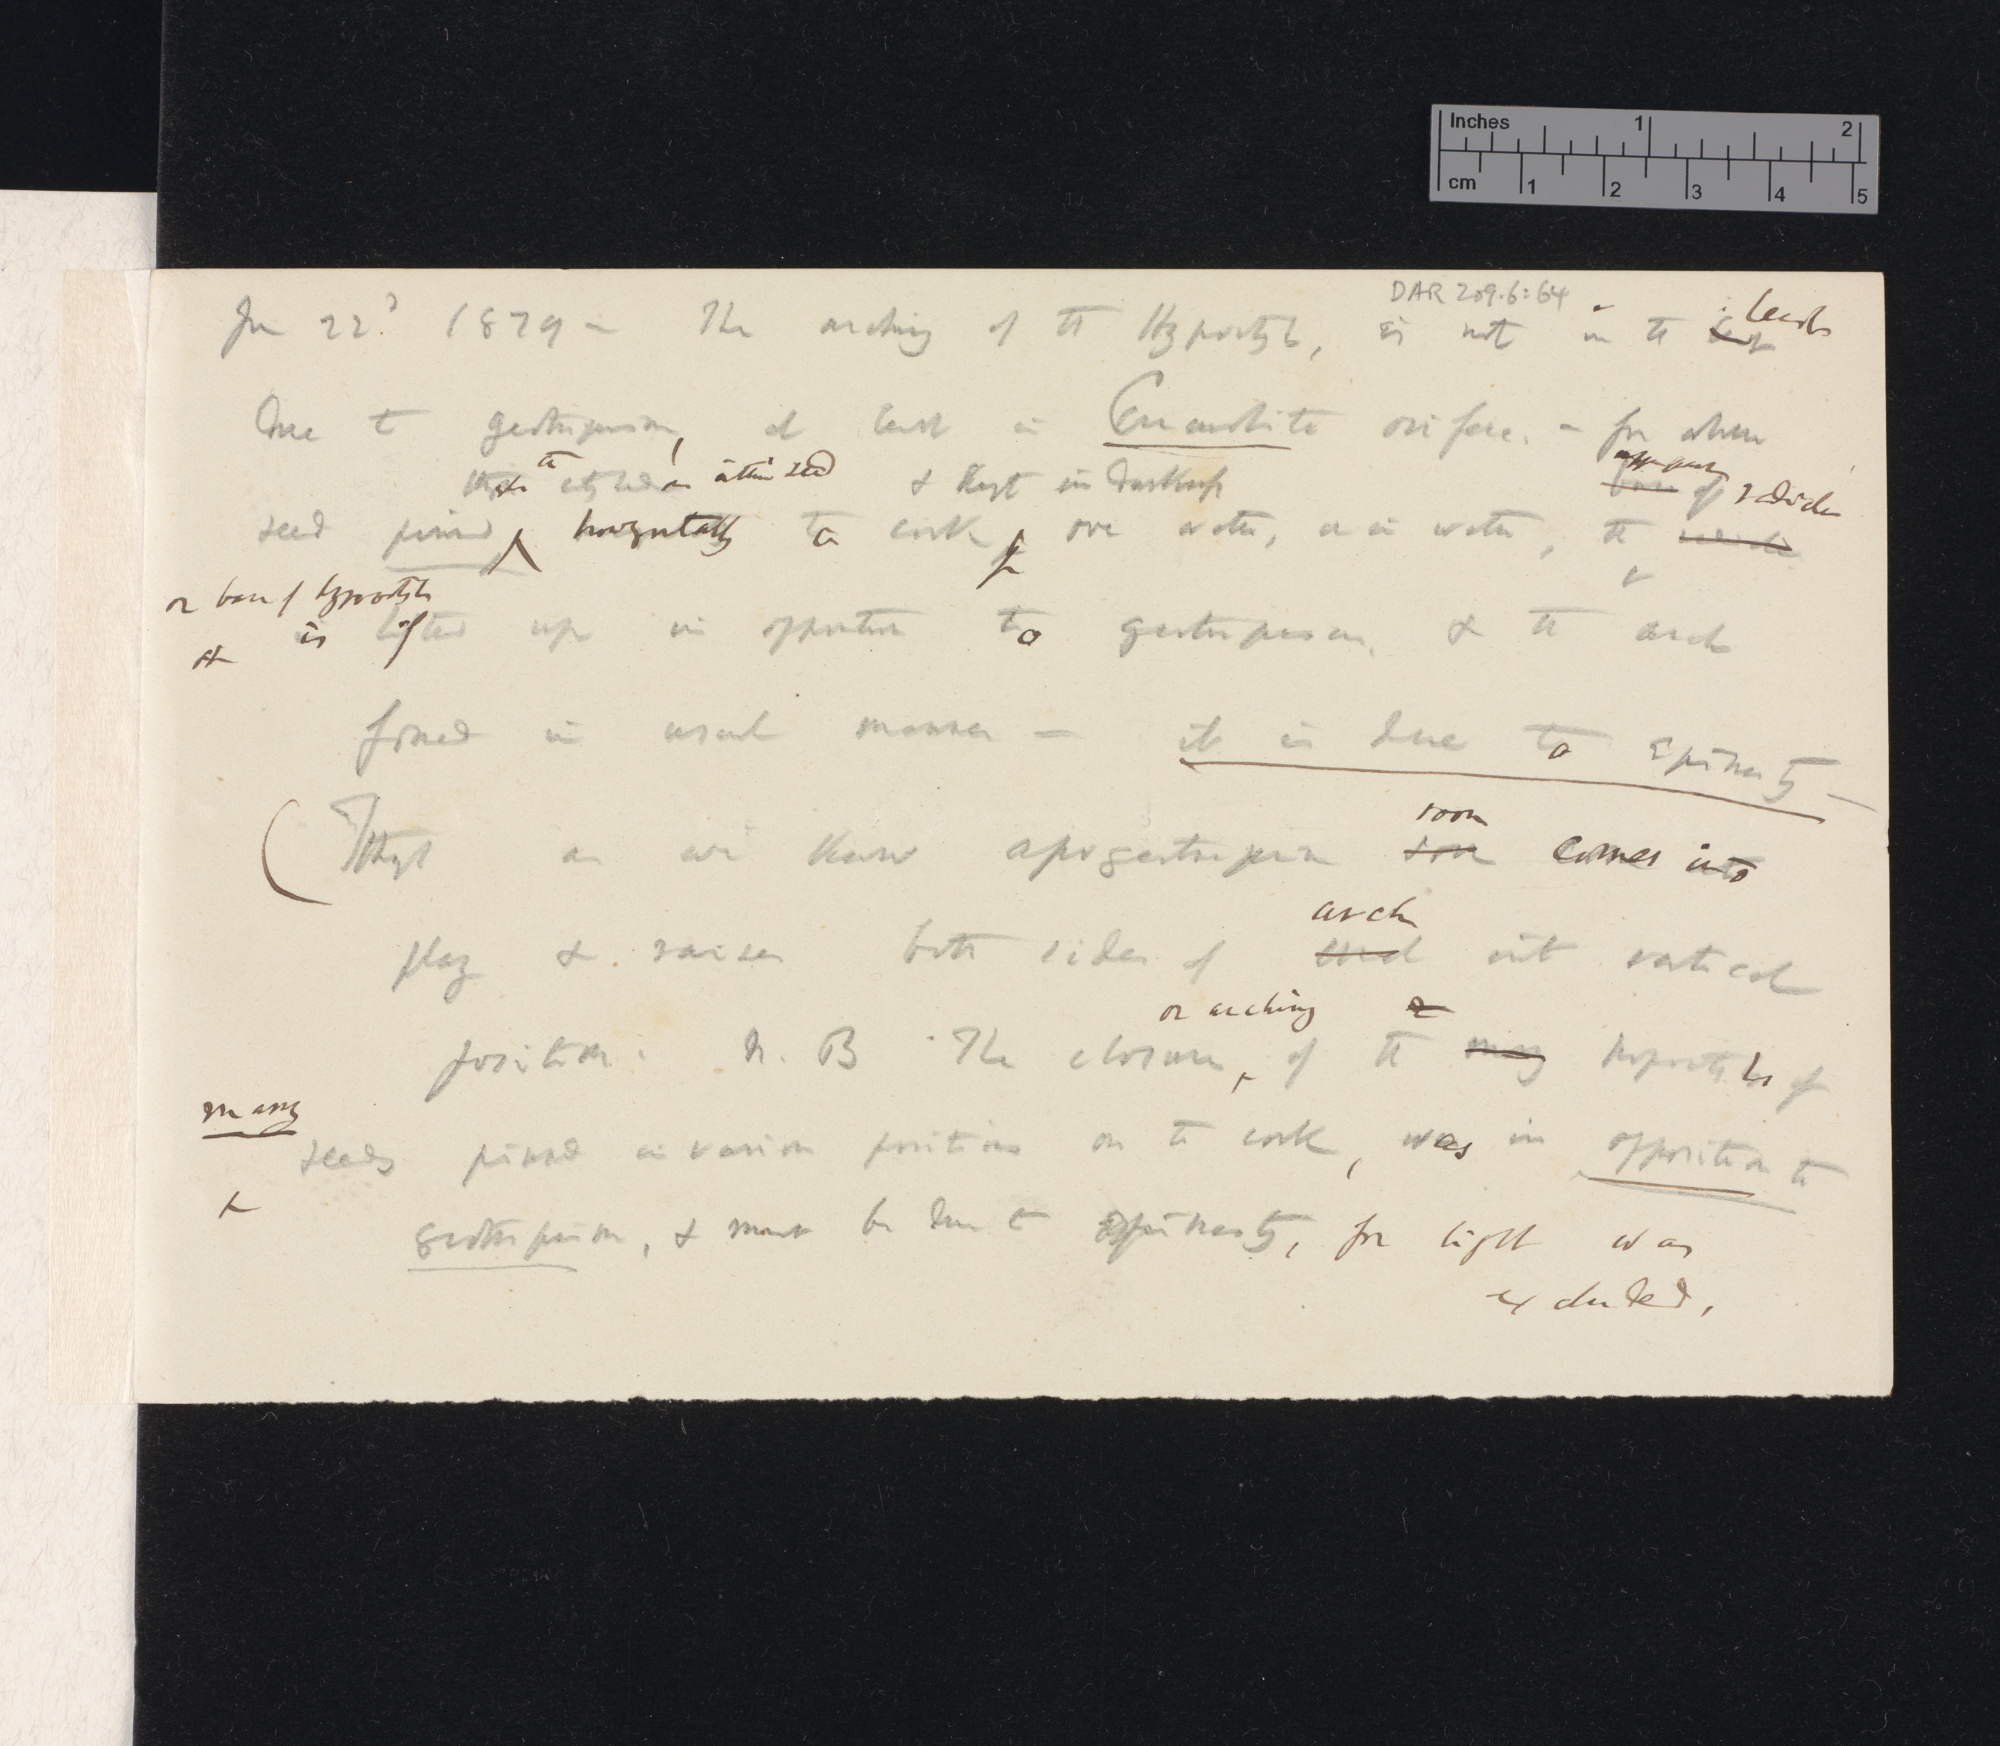 Inches 1 2
cm 1 2 3 4 5
DAR 209.6:64
Jan 22d 1879 — The arching of the Hypocotyls, is not in the least
due to geotropism, at least in Cucurbita ovifera. — for when
the within seed & kept in darkness upper part of radicle
seed pinned horizontally to cork, over water, or in water, the
or base of hypocotyls
is lifted up in opposition to geotropism, & the arch
formed in usual manner — it is due to Epinasty —
(Though as we know apogeotropism soon comes into
arch
play & raises both sides of into vertical
or arching
position. N. B The closure, of the hypocotyls of
many
seeds pinned in various positions on the cork, was in opposition to
geotropism, & must be due to epinasty, for light was
excluded.